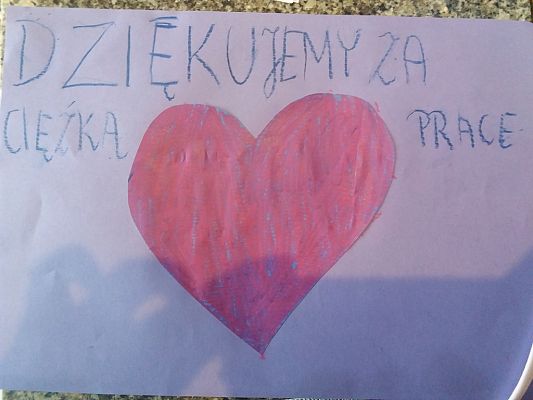 DZIĘKUJEMY ZA
CIĘŹKĄ PRACE